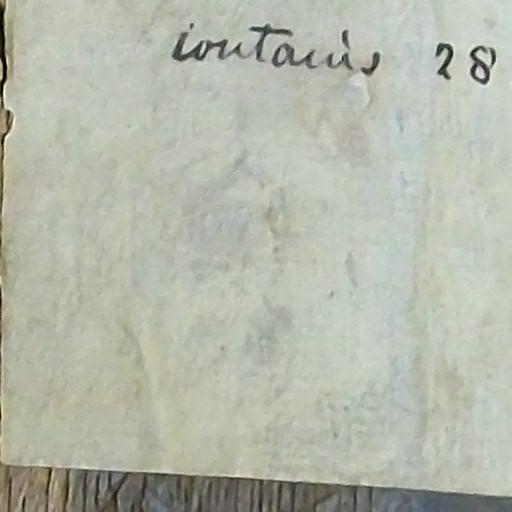 contains 28